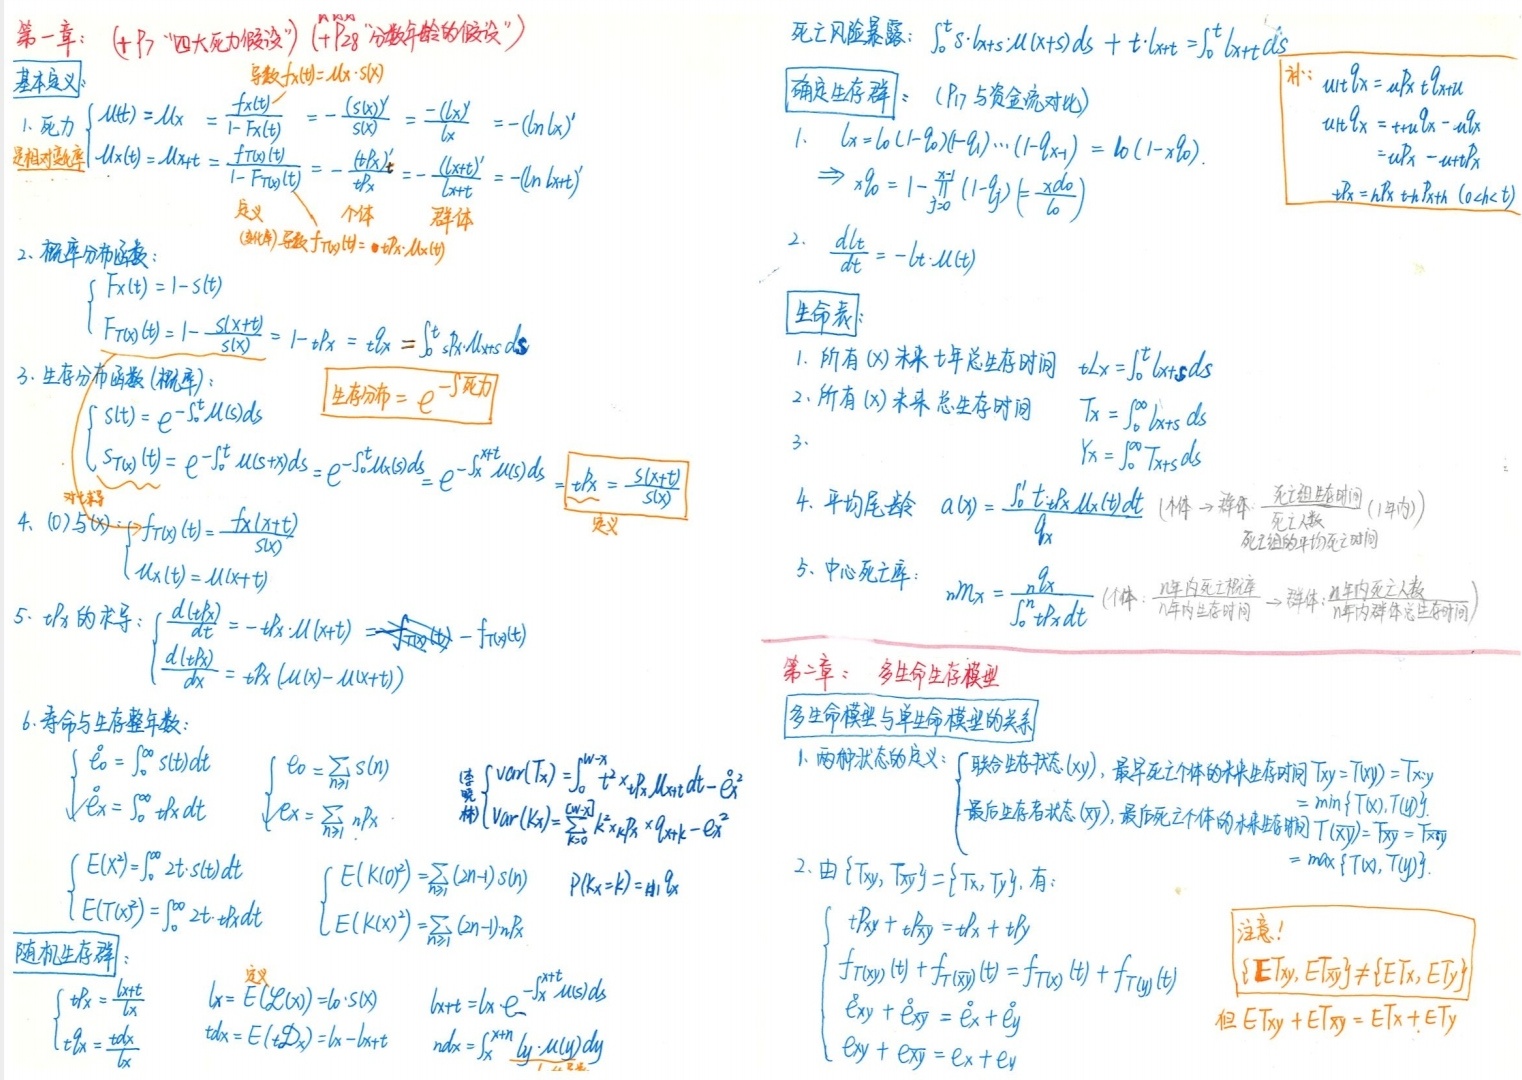 第一章： (+P7 "四大死力假设") (+P28 "分数年龄的假设")
基本定义：
导数 fx(t)=μx·s(x)
1. 死力 { μ(t) = μx = fx(t)/(1-Fx(t)) = -(s(x))'/s(x) = -(lx)'/lx = -(ln lx)'
是相对变化率
μx(t) = μx+t = fT(x)(t)/(1-FT(x)(t)) = -(tPx)'t/tPx = -(lx+t)'/lx+t = -(ln lx+t)'
定义 个体 群体
(变化率) 导数 fT(x)(t) = tPx·μx(t)
2. 概率分布函数：
{ Fx(t) = 1-s(t)
FT(x)(t) = 1 - s(x+t)/s(x) = 1-tPx = tqx = ∫₀ᵗ sPx·μx+s ds
3. 生存分布函数(概率)：
生存分布 = e^(-∫死力)
{ s(t) = e^(-∫₀ᵗ μ(s)ds)
sT(x)(t) = e^(-∫₀ᵗ μ(s+x)ds) = e^(-∫₀ᵗ μx(s)ds) = e^(-∫ₓ^(x+t) μ(s)ds) = tPx = s(x+t)/s(x)
定义
对t求导
4. (0)与(x)： { fT(x)(t) = fx(x+t)/s(x)
μx(t) = μ(x+t)
5. tPx 的求导： { d(tPx)/dt = -tPx·μ(x+t) = -fT(x)(t)
d(tPx)/dx = tPx (μ(x)-μ(x+t))
6. 寿命与生存整年数：
{ e̊₀ = ∫₀^∞ s(t)dt { e₀ = Σn≥1 s(n)
e̊x = ∫₀^∞ tPx dt ex = Σn≥1 nPx
{ var(Tx) = ∫₀^(w-x) t² × tPx μx+t dt - e̊x²
Var(Kx) = Σk=0^[w-x] k² × kPx × qx+k - ex²
{ E(X²) = ∫₀^∞ 2t·s(t)dt { E(K(0)²) = Σn≥1 (2n-1)s(n) P(Kx=k) = k|1qx
E(T(x)²) = ∫₀^∞ 2t·tPx dt E(K(x)²) = Σn≥1 (2n-1)nPx
随机生存群：
定义
{ tPx = lx+t/lx lx = E(𝓛(x)) = l₀·s(x) lx+t = lx·e^(-∫ₓ^(x+t) μ(s)ds)
tqx = tdx/lx tdx = E(t𝓓x) = lx-lx+t ndx = ∫ₓ^(x+n) ly·μ(y)dy
死亡风险暴露： ∫₀ᵗ s·lx+s·μ(x+s)ds + t·lx+t = ∫₀ᵗ lx+t ds
确定生存群： (P17 与资金流对比)
1. lx = l₀(1-q₀)(1-q₁)…(1-qx-1) = l₀(1-xq₀).
⇒ xq₀ = 1 - ∏j=0^(x-1) (1-qj) (= xd₀/l₀)
2. dlt/dt = -lt·μ(t)
补： u|tqx = uPx tqx+u
u|tqx = t+uqx - uqx
= uPx - u+tPx
tPx = hPx t-hPx+h (0<h<t)
生命表：
1. 所有(x)未来t年总生存时间 tLx = ∫₀ᵗ lx+s ds
2. 所有(x)未来总生存时间 Tx = ∫₀^∞ lx+s ds
3. Yx = ∫₀^∞ Tx+s ds
4. 平均尾龄 a(x) = ∫₀¹ t·tPx μx(t)dt / qx (个体 → 群体: 死亡组生存时间/死亡人数 (1年内))
死亡组的平均死亡时间
5. 中心死亡率： nmx = nqx / ∫₀ⁿ tPx dt (个体: n年内死亡概率/n年内生存时间 → 群体: n年内死亡人数/n年内群体总生存时间)
第二章： 多生命生存模型
多生命模型与单生命模型的关系
1. 两种状态的定义： { 联合生存状态(xy)，最早死亡个体的未来生存时间 Txy = T(xy) = Tx:y
= min{T(x), T(y)}.
最后生存者状态(x̅y̅)，最后死亡个体的未来生存时间 T(x̅y̅) = Tx̅y̅ = Tx̅:̅y̅
= max{T(x), T(y)}.
2. 由{Txy, Tx̅y̅} = {Tx, Ty}，有：
{ tPxy + tPx̅y̅ = tPx + tPy
fT(xy)(t) + fT(x̅y̅)(t) = fT(x)(t) + fT(y)(t)
e̊xy + e̊x̅y̅ = e̊x + e̊y
exy + ex̅y̅ = ex + ey
注意！
{ETxy, ETx̅y̅} ≠ {ETx, ETy}
但 ETxy + ETx̅y̅ = ETx + ETy